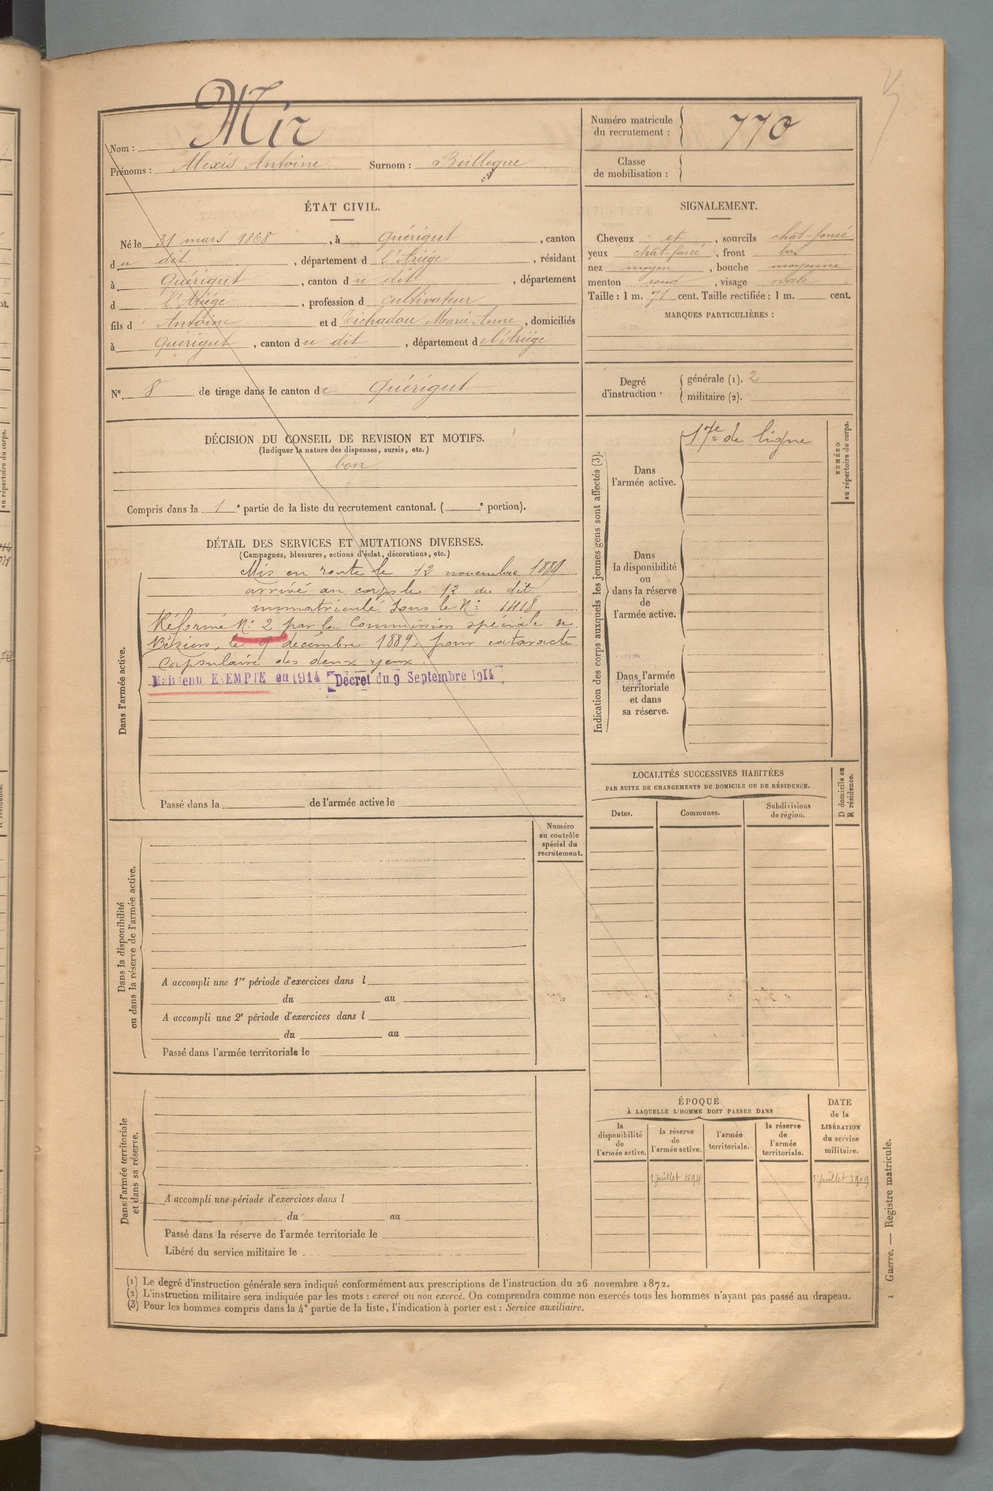 Nom : Mir
Prénoms : Alexis Antoine Surnom :
Numéro matricule du recrutement : 770
Classe de mobilisation :
ÉTAT CIVIL.
Né le 31 mars 1868, à Quérigut, canton
du dit, département d l'Ariège, résidant
à Quérigut, canton du dit, département
d l'Ariège, profession d cultivateur
fils d Antoine et d Marie Anne, domiciliés
à Quérigut, canton du dit, département de l'Ariège
N° 8 de tirage dans le canton de Quérigut
SIGNALEMENT.
Cheveux et, sourcils chat-foncé
yeux chat-foncé, front bas
nez moyen, bouche moyenne
menton rond, visage ovale
Taille : 1 m. 71 cent. Taille rectifiée : 1 m. cent.
MARQUES PARTICULIÈRES :
Degré d'instruction.
générale (1). 2
militaire (2).
DÉCISION DU CONSEIL DE REVISION ET MOTIFS.
(Indiquer la nature des dispenses, sursis, etc.)
bon
Compris dans la 1e partie de la liste du recrutement cantonal. ( e portion).
DÉTAIL DES SERVICES ET MUTATIONS DIVERSES.
(Campagnes, blessures, actions d'éclat, décorations, etc.)
Dans l'armée active.
Mis en route le 12 novembre 1889
arrivé au corps le 12 du dit
immatriculé sous le N° 1418
Réformé N° 2 par la Commission spéciale de
Béziers, le 9 décembre 1889, pour cataracte
capsulaire des deux yeux.
Maintenu EXEMPTÉ en 1914 Décret du 9 Septembre 1914
Passé dans la de l'armée active le
Indication des corps auxquels les jeunes gens sont affectés (3).
NUMÉRO au répertoire du corps.
Dans l'armée active.
17e de ligne
Dans la disponibilité ou dans la réserve de l'armée active.
Dans l'armée territoriale et dans sa réserve.
LOCALITÉS SUCCESSIVES HABITÉES
PAR SUITE DE CHANGEMENTS DE DOMICILE OU DE RÉSIDENCE.
Dates. Communes. Subdivisions de région. D domicile ou R résidence.
Numéro au contrôle spécial du recrutement.
Dans la disponibilité ou dans la réserve de l'armée active.
A accompli une 1re période d'exercices dans l
du au
A accompli une 2e période d'exercices dans l
du au
Passé dans l'armée territoriale le
Dans l'armée territoriale et dans sa réserve.
A accompli une période d'exercices dans l
du au
Passé dans la réserve de l'armée territoriale le
Libéré du service militaire le
ÉPOQUE
À LAQUELLE L'HOMME DOIT PASSER DANS
la disponibilité de l'armée active.
la réserve de l'armée active.
l'armée territoriale.
la réserve de l'armée territoriale.
DATE de la LIBÉRATION du service militaire.
juillet juillet
(1) Le degré d'instruction générale sera indiqué conformément aux prescriptions de l'instruction du 26 novembre 1872.
(2) L'instruction militaire sera indiquée par les mots : exercé ou non exercé. On comprendra comme non exercés tous les hommes n'ayant pas passé au drapeau.
(3) Pour les hommes compris dans la 4e partie de la liste, l'indication à porter est : Service auxiliaire.
1 Guerre. — Registre matricule.